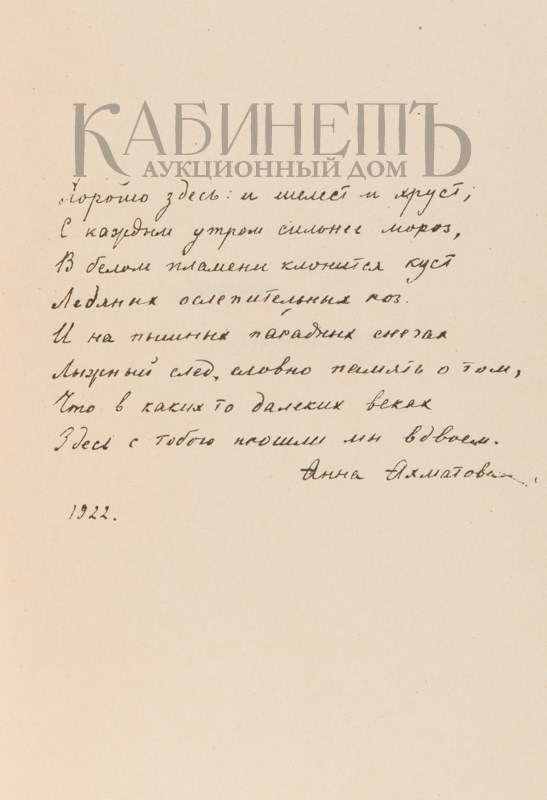 КАБИНЕТЪ
АУКЦИОННЫЙ ДОМ
Хорошо здесь: и шелест и хруст;
С каждым утром сильнее мороз,
В белом пламени клонится куст
Ледяных ослепительных роз.
И на пышных парадных снегах
Лыжный след, словно память о том,
Что в каких то далеких веках
Здесь с тобою прошли мы вдвоем.
Анна Ахматова.
1922.